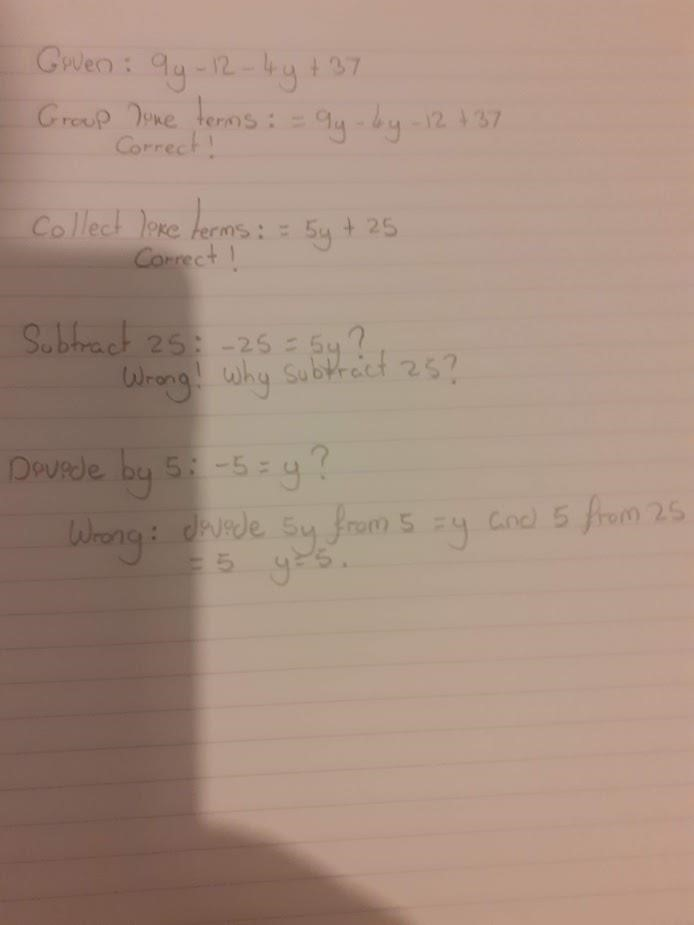 Given: 9y - 12 - 4y + 37
Group like terms: = 9y - 4y - 12 + 37
Correct!
Collect like terms: = 5y + 25
Correct!
Subtract 25: -25 = 5y?
Wrong! Why subtract 25?
Divide by 5: -5 = y?
Wrong: divide 5y from 5 = y and 5 from 25
= 5 y = 5.